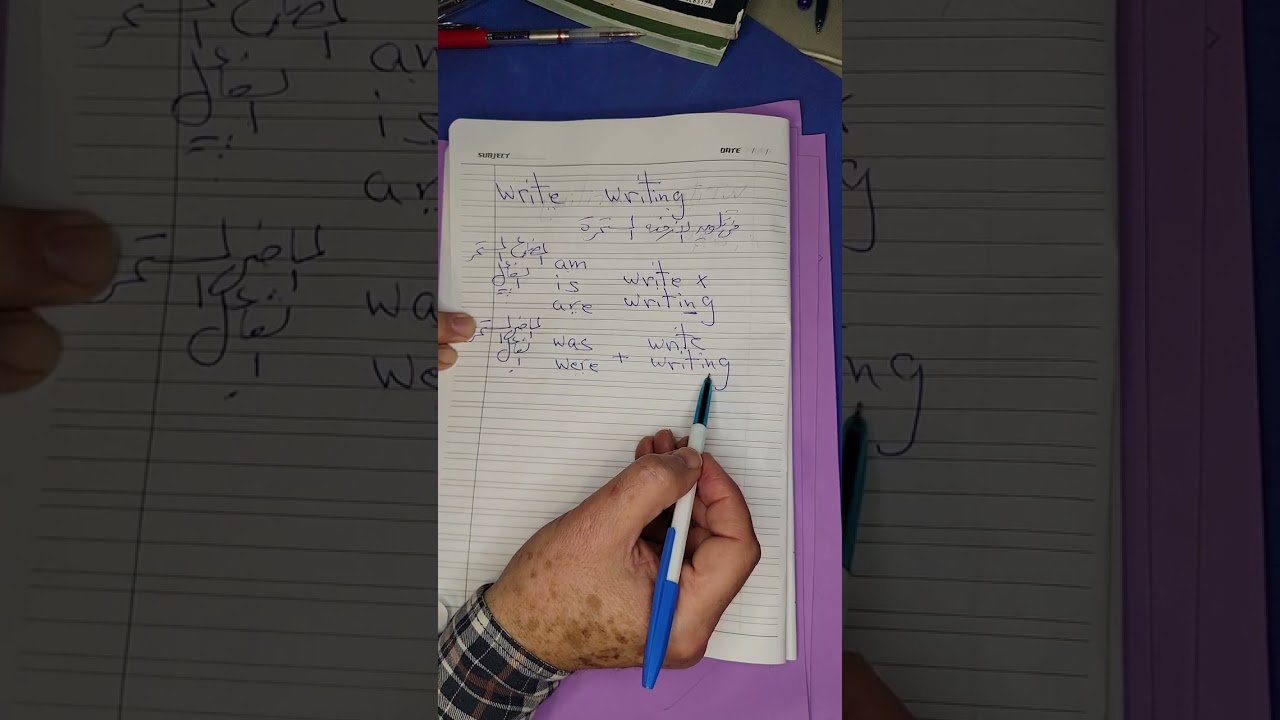 SUBJECT DATE
write writing
في تكوين الازمنة المستمرة
المضارع المستمر am
is write x
are writing
الماضي المستمر was write
were + writing